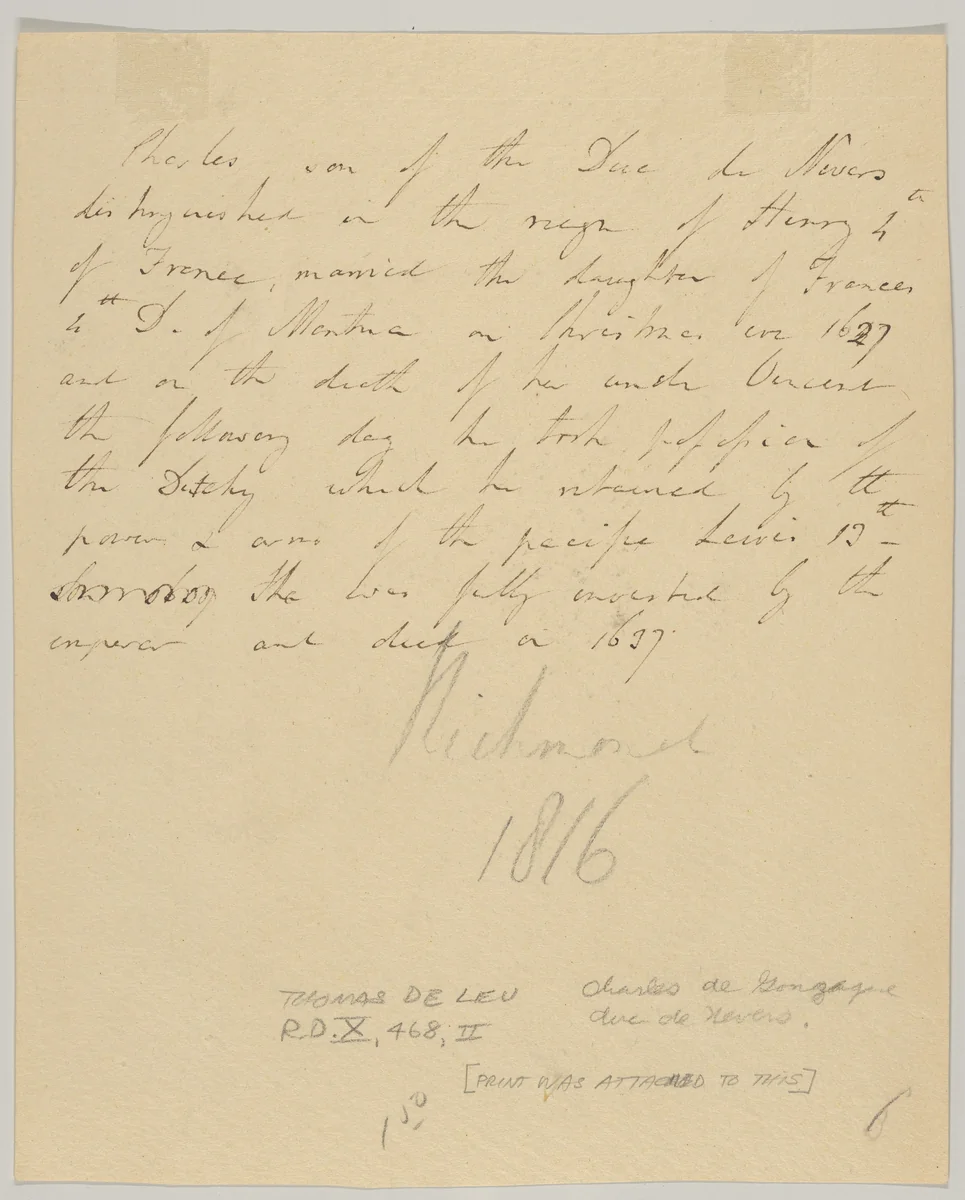 Charles son of the Duc de Nevers
distinguished in the reign of Henry 4th
of France, married the daughter of Frances
4th D. of Mantua on Christmas eve 1627
and on the death of her uncle Vincent
the following day he took possession of
the Dutchy which he retained by the
power & arms of the pacific Lewis 13th -
the was fully invested by the
emperor and died in 1637.
Richmond
1816
THOMAS DE LEU
R.D. X, 468, II
Charles de Gonzague
duc de Nevers.
[PRINT WAS ATTACHED TO THIS]
1 50
6